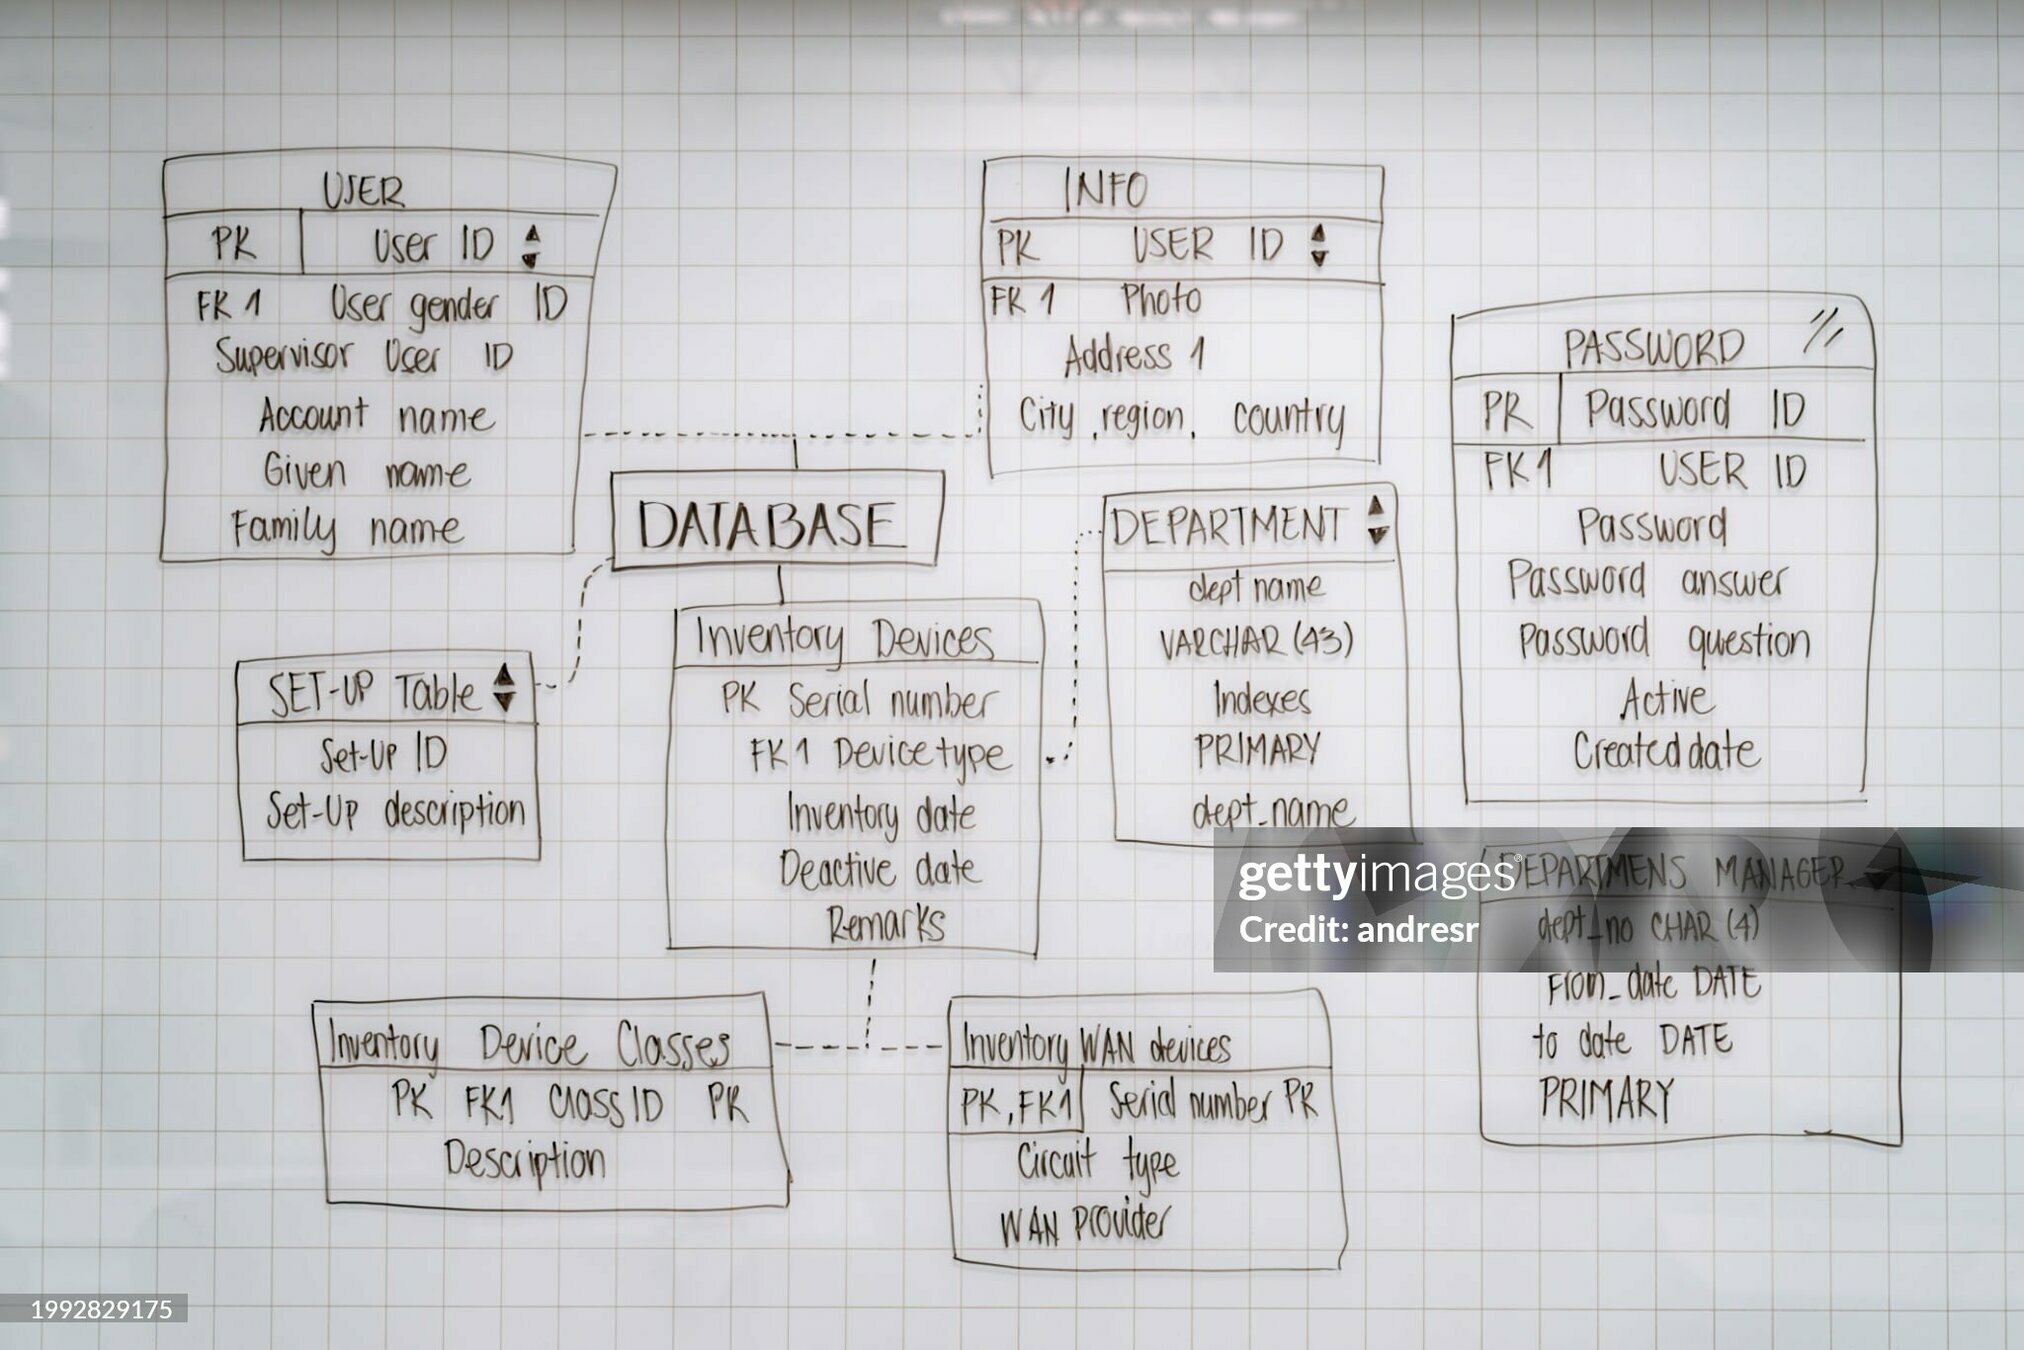 USER
PK User ID
FK 1 User gender ID
Supervisor User ID
Account name
Given name
Family name
INFO
PK USER ID
FK 1 Photo
Address 1
City, region, country
PASSWORD
PR Password ID
FK 1 USER ID
Password
Password answer
Password question
Active
Created date
DATABASE
DEPARTMENT
dept name
VARCHAR (43)
Indexes
PRIMARY
dept_name
SET-UP Table
Set-Up ID
Set-Up description
Inventory Devices
PK Serial number
FK 1 Device type
Inventory date
Deactive date
Remarks
DEPARTMENS MANAGER
dept_no CHAR (4)
From_date DATE
to date DATE
PRIMARY
Inventory Device Classes
PK FK1 Class ID PK
Description
Inventory WAN devices
PK, FK1 Serial number PR
Circuit type
WAN Provider
gettyimages®
Credit: andresr
1992829175